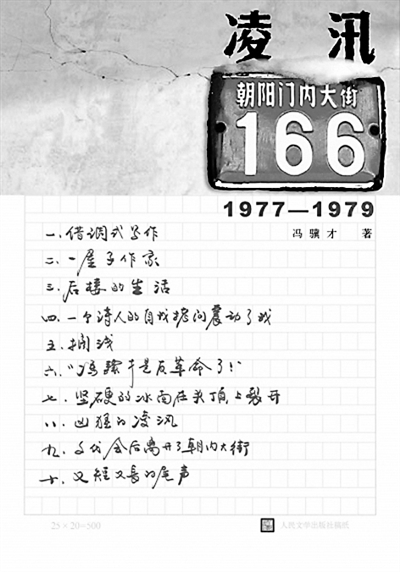 凌汛
朝阳门内大街
166
1977—1979
冯骥才 著
一、借调式写作
二、一屋子作家
三、后楼的生活
四、一个诗人的自我拷问震动了我
五、搁浅
六、“冯骥才是反革命了！”
七、坚硬的冰面在头顶上裂开
八、凶猛的凌汛
九、文代会后离开了朝内大街
十、又短又长的尾声
25×20=500
人民文学出版社稿纸